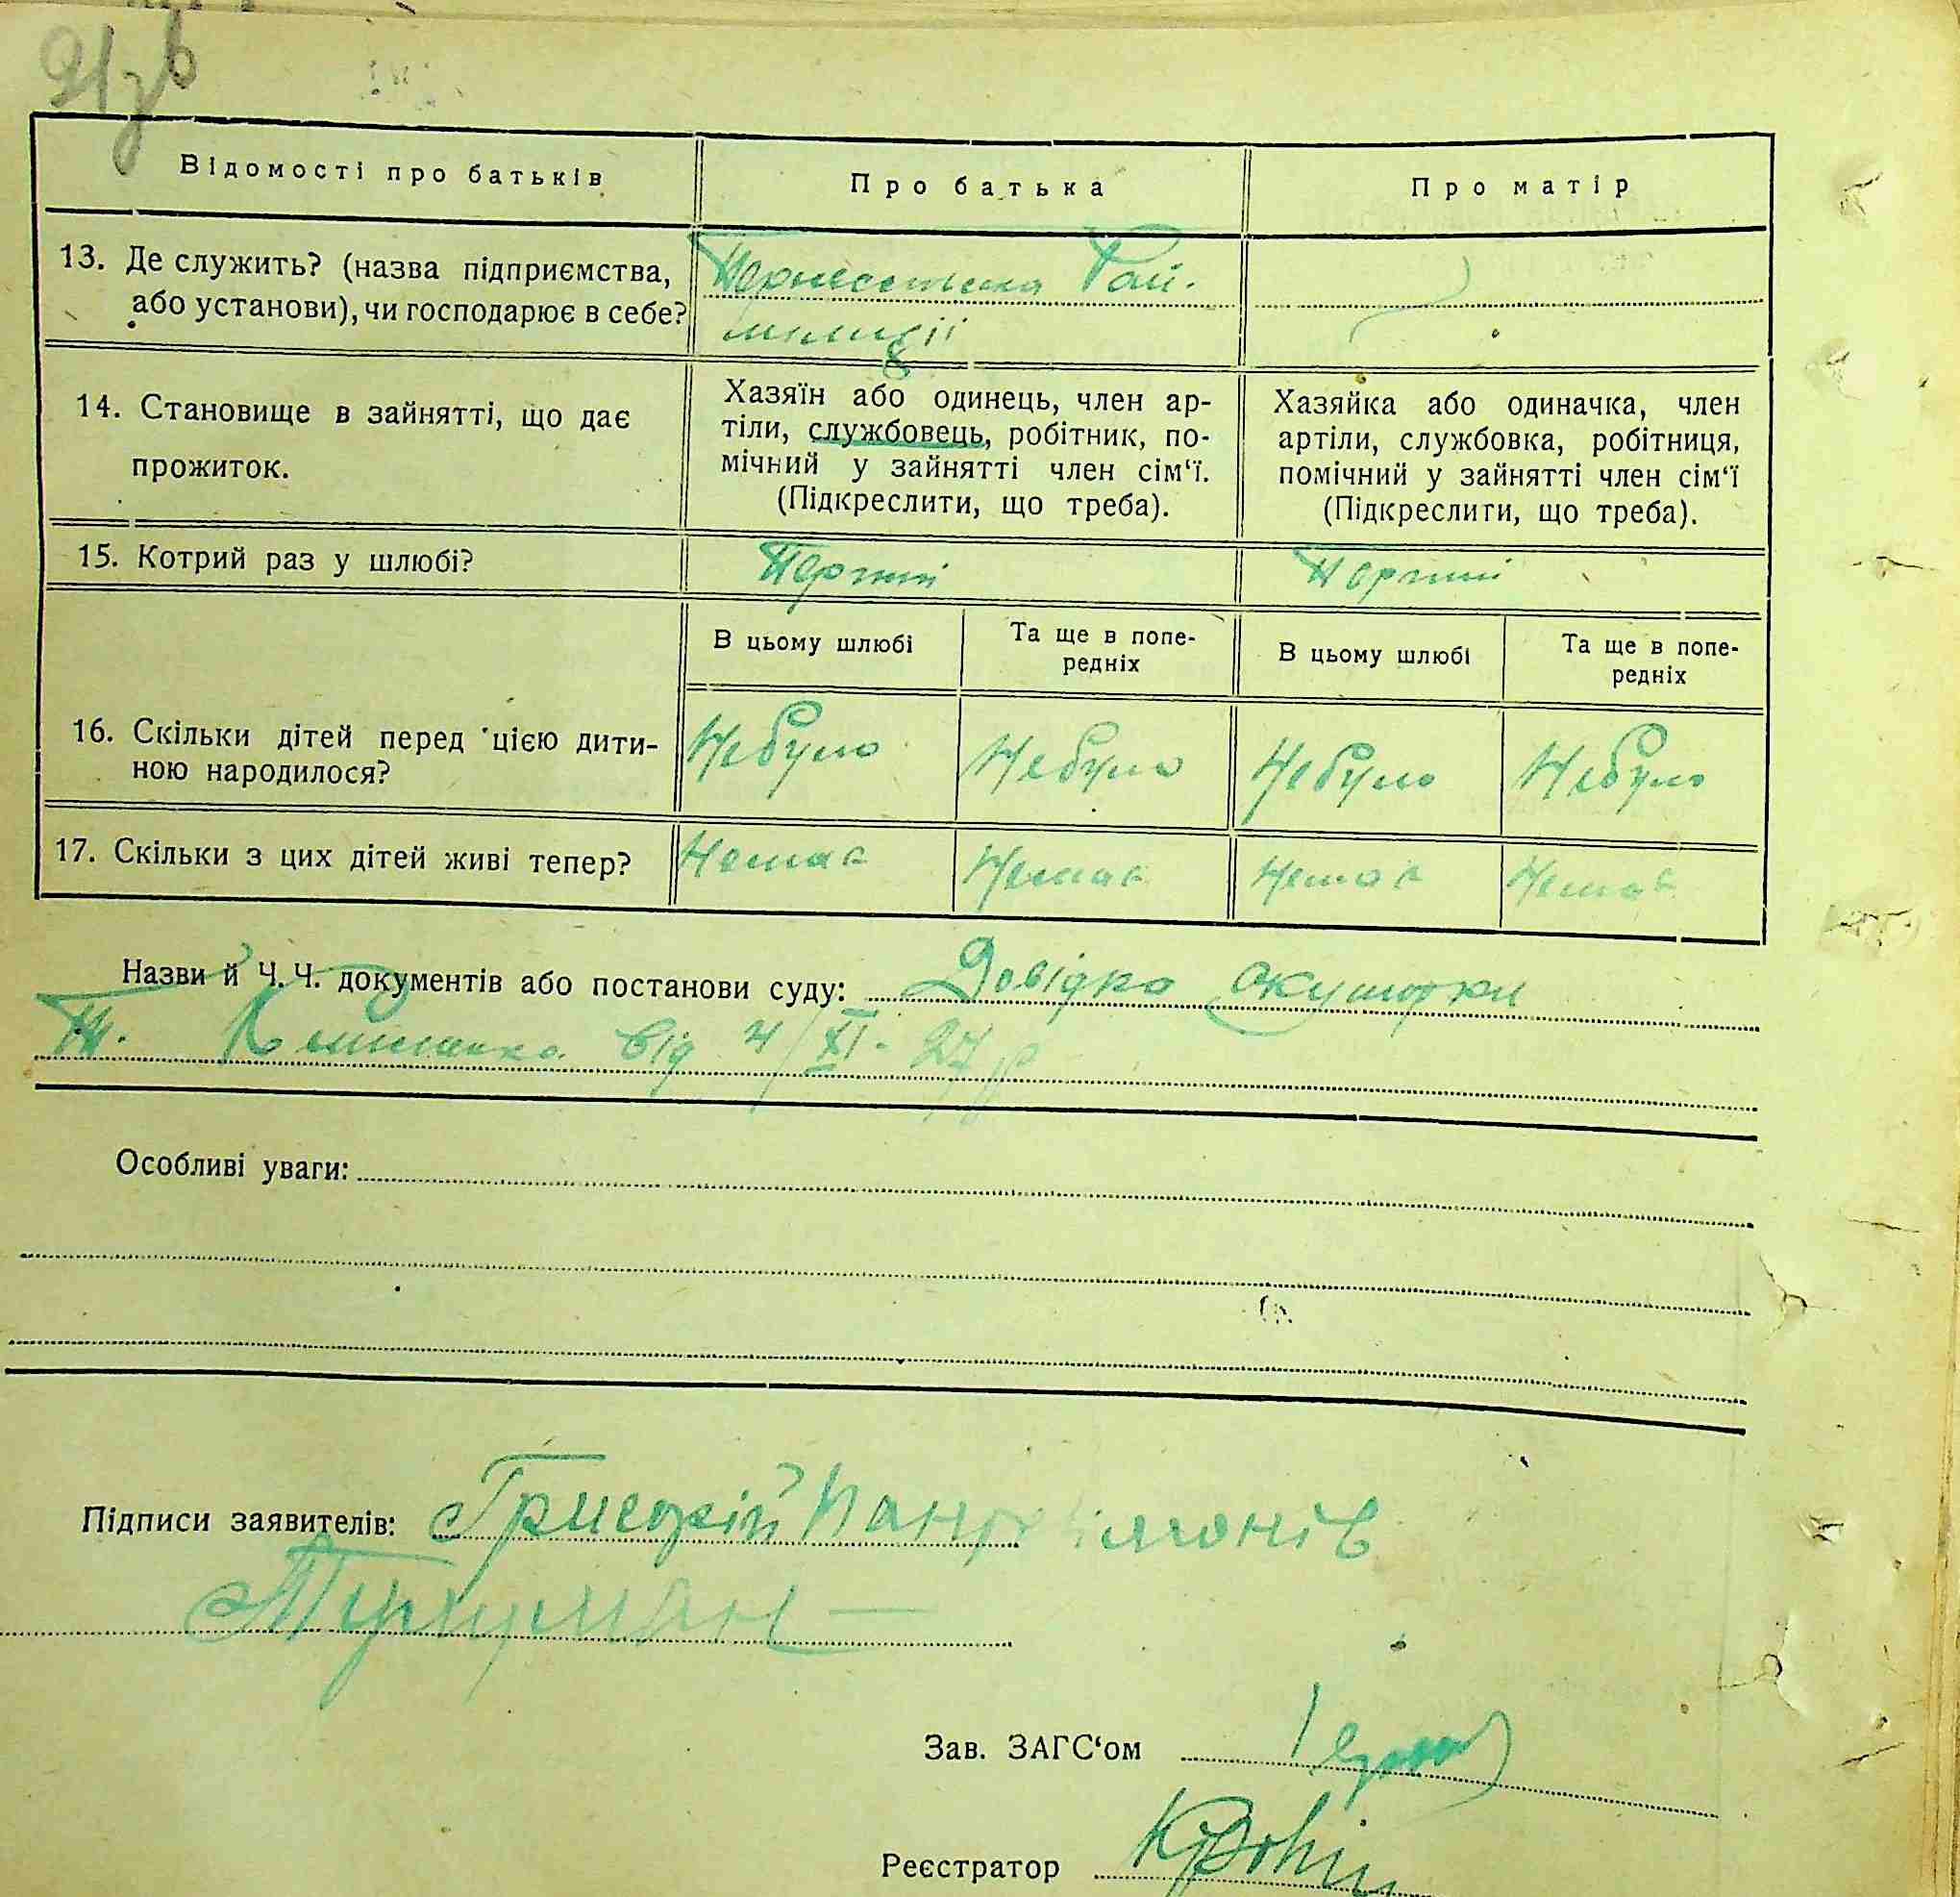 Відомості про батьків
Про батька
Про матір
13. Де служить? (назва підприємства,
або установи), чи господарює в себе?
Рай.
міліції
14. Становище в зайнятті, що дає
прожиток.
Хазяїн або одинець, член ар-
тіли, службовець, робітник, по-
мічний у зайнятті член сім‘ї.
(Підкреслити, що треба).
Хазяйка або одиначка, член
артіли, службовка, робітниця,
помічний у зайнятті член сім‘ї
(Підкреслити, що треба).
15. Котрий раз у шлюбі?
Перший
Перший
В цьому шлюбі
Та ще в попе-
редніх
В цьому шлюбі
Та ще в попе-
редніх
16. Скільки дітей перед цією дити-
ною народилося?
Небуло
Небуло
Небуло
Небуло
17. Скільки з цих дітей живі тепер?
Немає
Немає
Немає
Немає
Назви й Ч. Ч. документів або постанови суду: Довідка акушорки
від 4/XI-27 р
Особливі уваги:
Підписи заявителів: Григорій
Зав. ЗАГС‘ом
Реєстратор